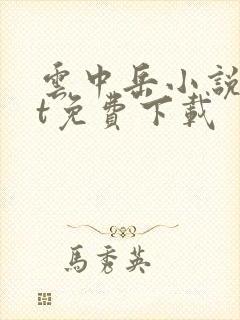 雲中岳小說
t免費下載
馬秀英